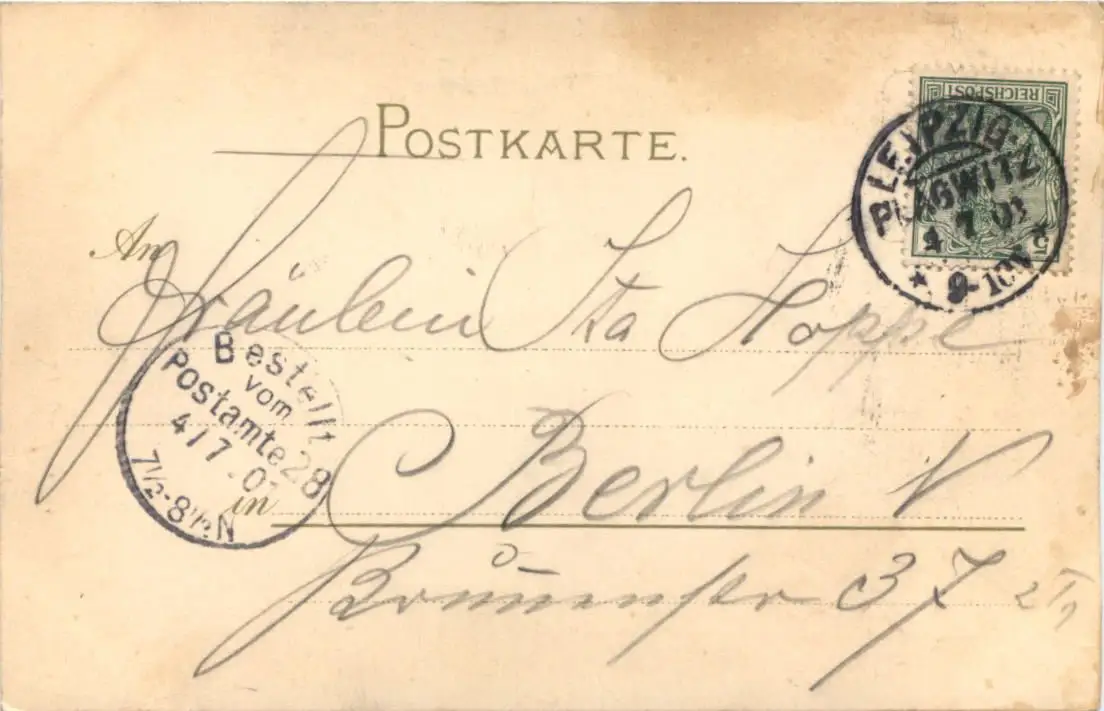 POSTKARTE.
REICHSPOST
5
LEIPZIG-
PLAGWITZ
4 7 01
* 9-10V *
An
Fräulein Ita Hoppe
Bestellt
vom
Postamte 28
4/7.01
7½-8½N
in
Berlin N
Brunnenstr 37